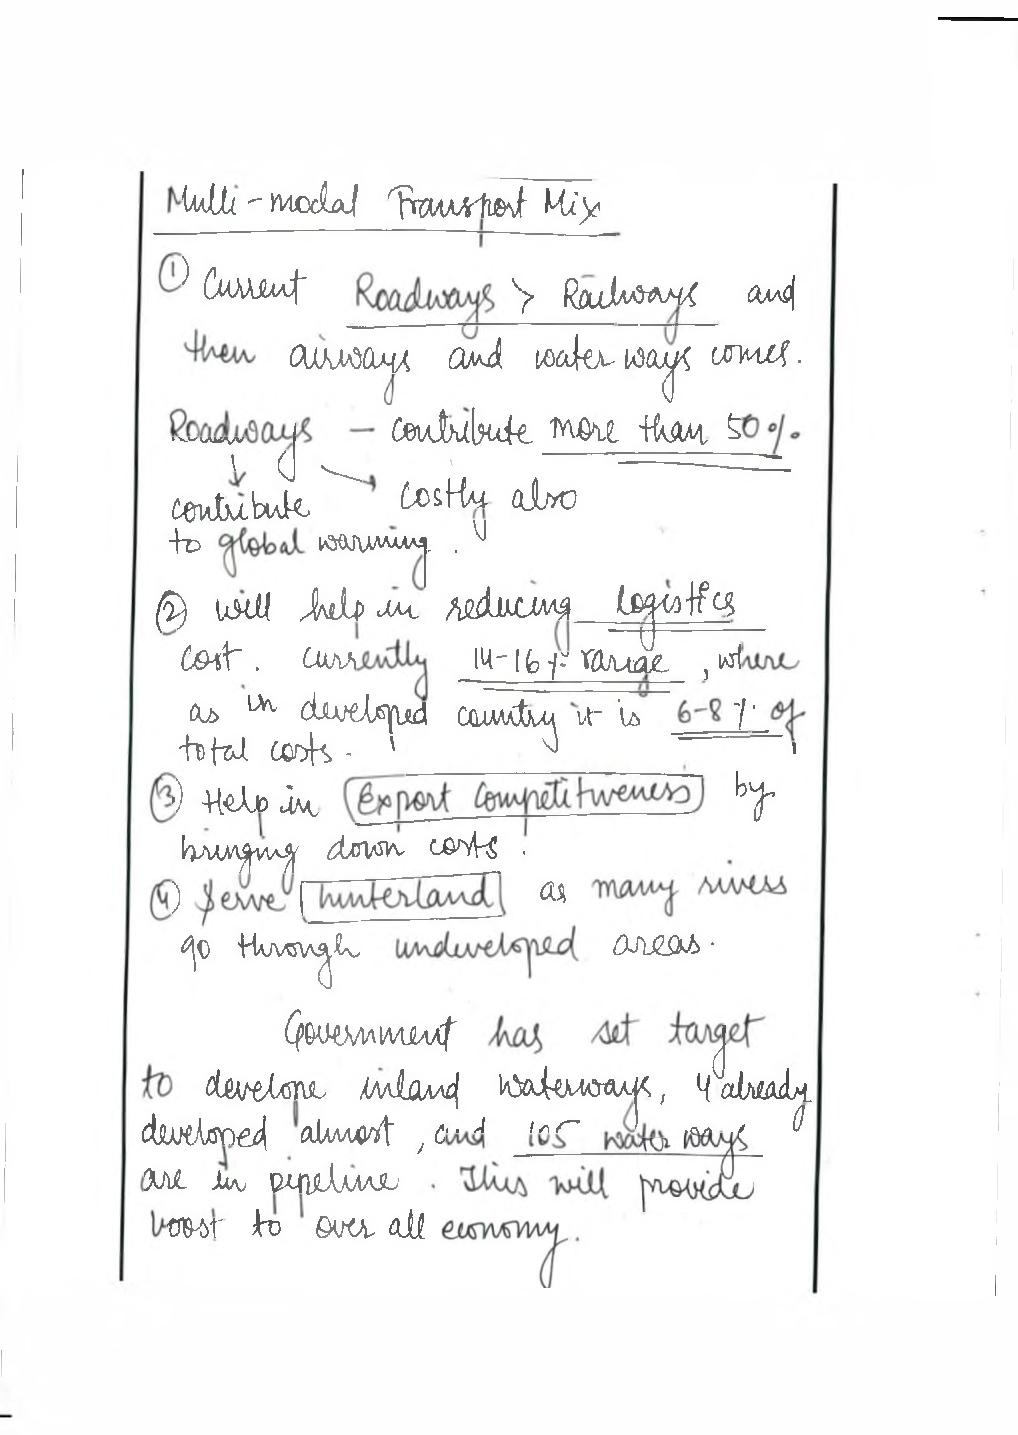 Multi-modal Transport Mix
① Current Roadways > Railways and
then airways and water ways comes.
Roadways – contribute more than 50%.
↓ → costly also
contribute
to global warming.
② will help in reducing logistics
cost. Currently 14-16% range, where
as in developed country it is 6-8% of
total costs.
③ Help in Export Competitiveness by
bringing down costs.
④ Serve hinterland as many rivers
go through undeveloped areas.
Government has set target
to develope inland waterways, 4 already
developed almost, and 105 water ways
are in pipeline. This will provide
boost to over all economy.